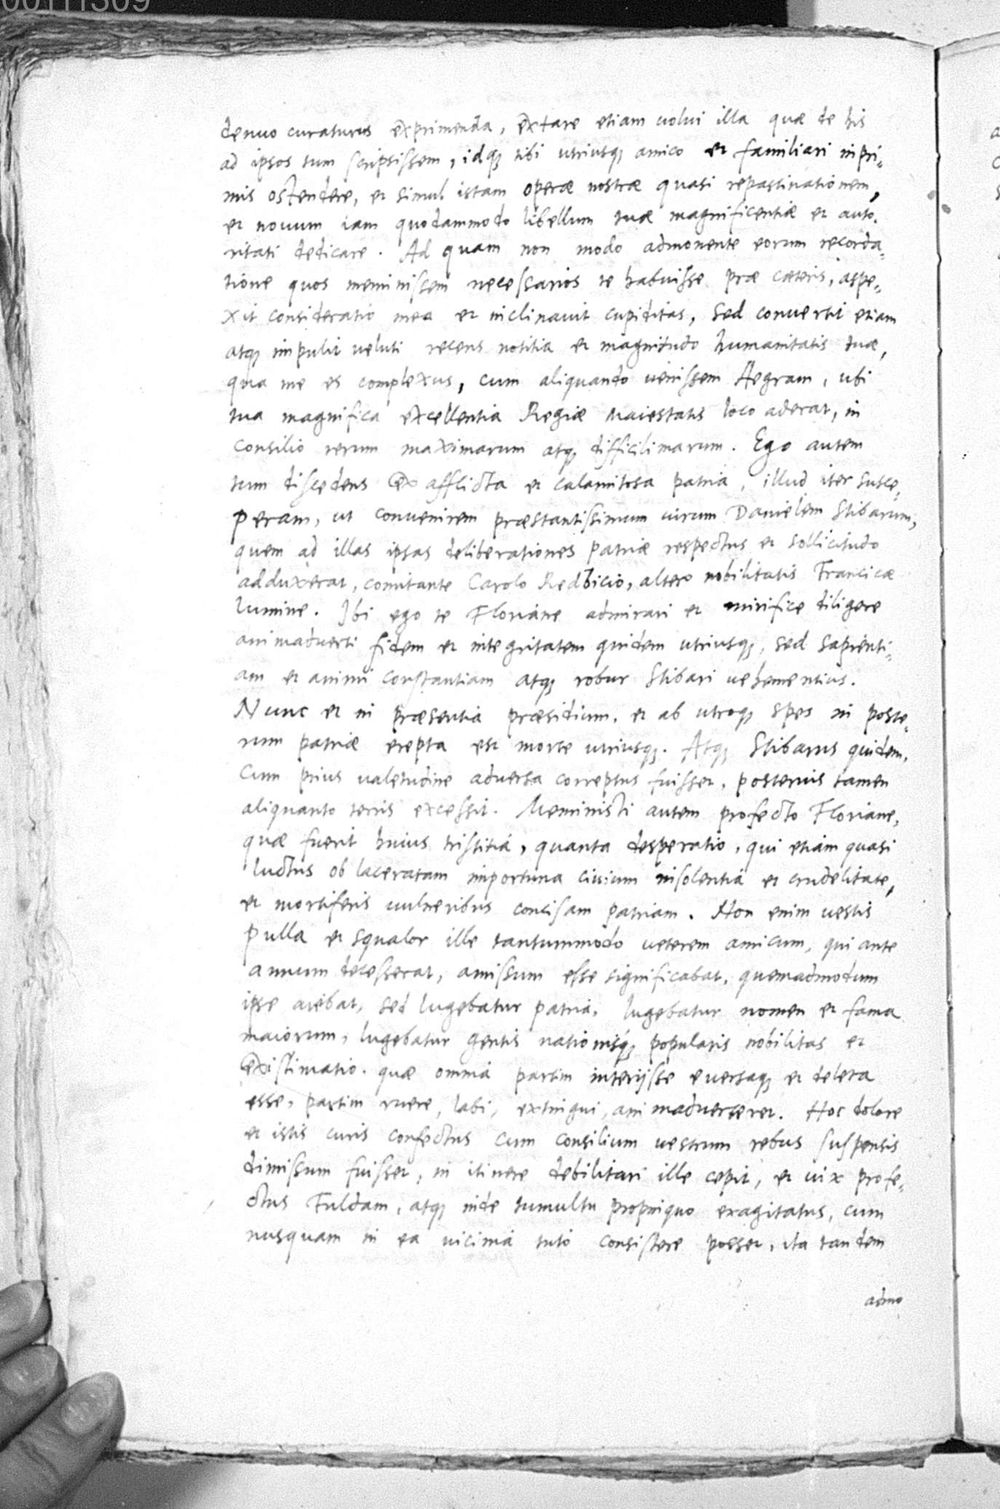 denuo curaturus exprimenda, extare etiam uolui illa quæ de his
ad ipsos tum scripsissem, idq; tibi utriusq; amico et familiari inpri-
mis ostendere, et simul istam operæ nostræ quasi repastinationem,
et nouum iam quodammodo libellum tuæ magnificentiæ et auto-
ritati dedicare. Ad quam non modo admonente eorum recorda-
tione quos meminissem necessarios te habuisse præ cæteris, aspe-
xit consideratio mea et inclinauit cupiditas, sed conuertit etiam
atq; impulit ueluti recens notitia et magnitudo humanitatis tuæ,
qua me es complexus, cum aliquando uenissem Aegram, ubi
tua magnifica excellentia Regiæ Maiestatis loco aderat, in
consilio rerum maximarum atq; difficilimarum. Ego autem
tum discedens ex afflicta et calamitosa patria, illud iter susce-
peram, ut conuenirem præstantissimum uirum Danielem Stibarum,
quem ad illas ipsas deliberationes patriæ respectus et sollicitudo
adduxerat, comitante Carolo Redbicio, altero nobilitatis Francicæ
lumine. Ibi ego te Floriane admirari et mirifice diligere
animaduerti fidem et integritatem quidem utriusq; sed sapienti-
am et animi constantiam atq; robur Stibari uehementius.
Nunc et in præsentia præsidium, et ab utroq; spes in poste-
rum patriæ erepta est morte utriusq;. Atq; Stibarus quidem,
cum prius ualetudine aduersa correptus fuisset, posterius tamen
aliquanto terris excessit. Meministi autem profecto Floriane,
quæ fuerit huius tristitia, quanta desperatio, qui etiam quasi
luctus ob laceratam importuna ciuium insolentia et crudelitate,
et mortiferis uulneribus concisam patriam. Non enim uestis
pulla et squalor ille tantummodo ueterem amicum, qui ante
annum decesserat, amissum esse significabat, quemadmodum
ipse aiebat, sed lugebatur patria, lugebatur nomen et fama
maiorum, lugebatur gentis nationisq; popularis nobilitas et
existimatio. quæ omnia partim interijsse euersaq; et deleta
esse, partim ruere, labi, extingui, animaduerteret. Hoc dolore
et istis curis confectus cum consilium uestrum rebus suspensis
dimissum fuisset, in itinere debilitari ille cepit, et uix profe-
ctus Fuldam, atq; inde tumultu propinquo exagitatus, cum
nusquam in ea uicinia tuto consistere posset, ita tandem
admo